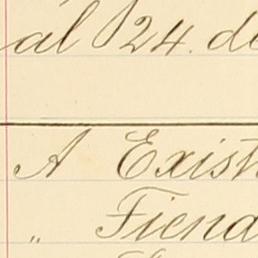 al 24. de
A Exist
" Fiend